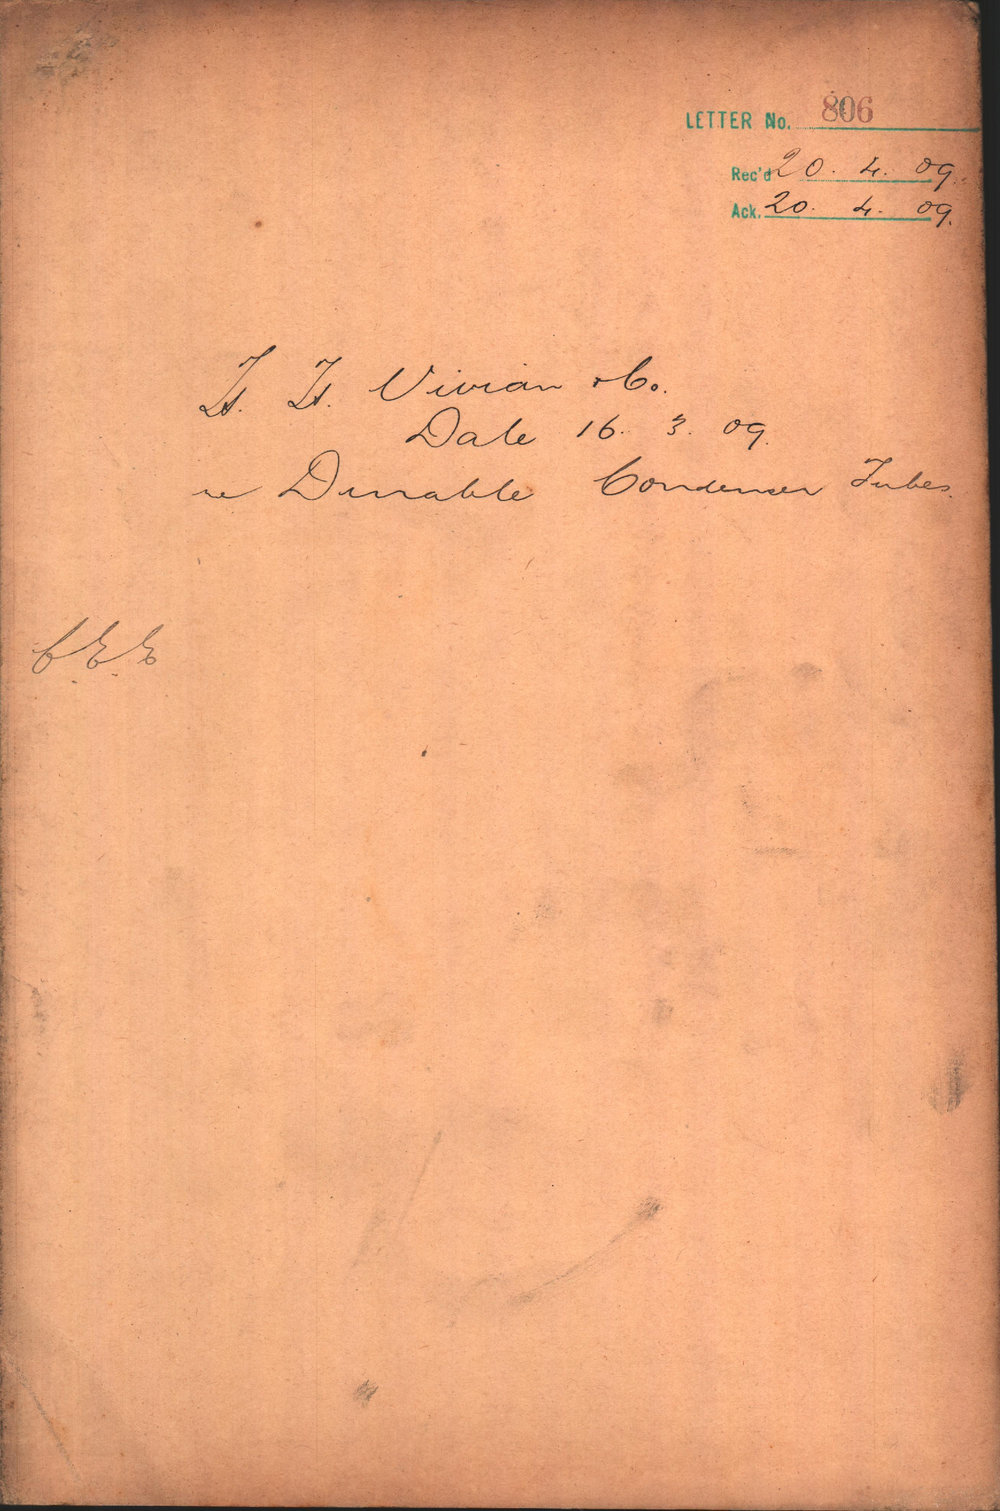 LETTER No. 806
Rec'd 20. 4. 09.
Ack. 20. 4. 09.
H. H. Vivian & Co.
Date 16. 3. 09.
re Durable Condenser Tubes.
C.E.E